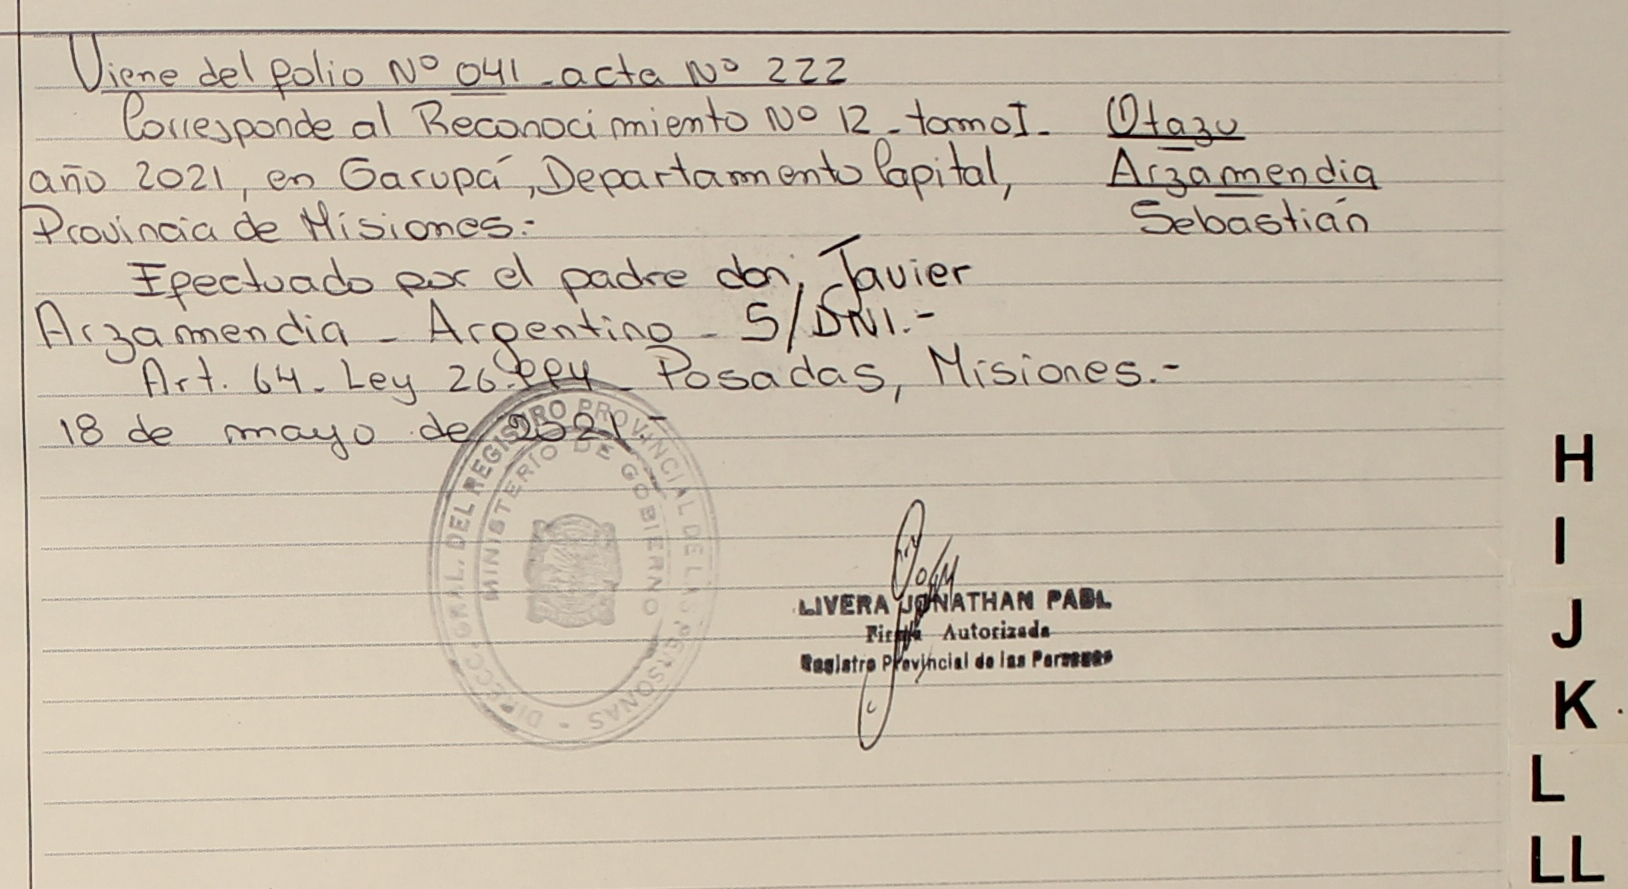 Viene del folio Nº 041 - acta Nº 222
Corresponde al Reconocimiento Nº 12 - tomo I -
año 2021, en Garupá, Departamento Capital,
Provincia de Misiones.-
Efectuado por el padre don, Javier
Arzamendia - Argentino - S/DNI.-
Art. 64 - Ley 26.994 - Posadas, Misiones.-
18 de mayo de 2021 -
Otazu
Arzamendia
Sebastián
DIRECC. GRAL. DEL REGISTRO PROVINCIAL DE LAS PERSONAS -
MINISTERIO DE GOBIERNO
LIVERA JONATHAN PABL
Firma Autorizada
Registro Provincial de las Personas
H
I
J
K
L
LL